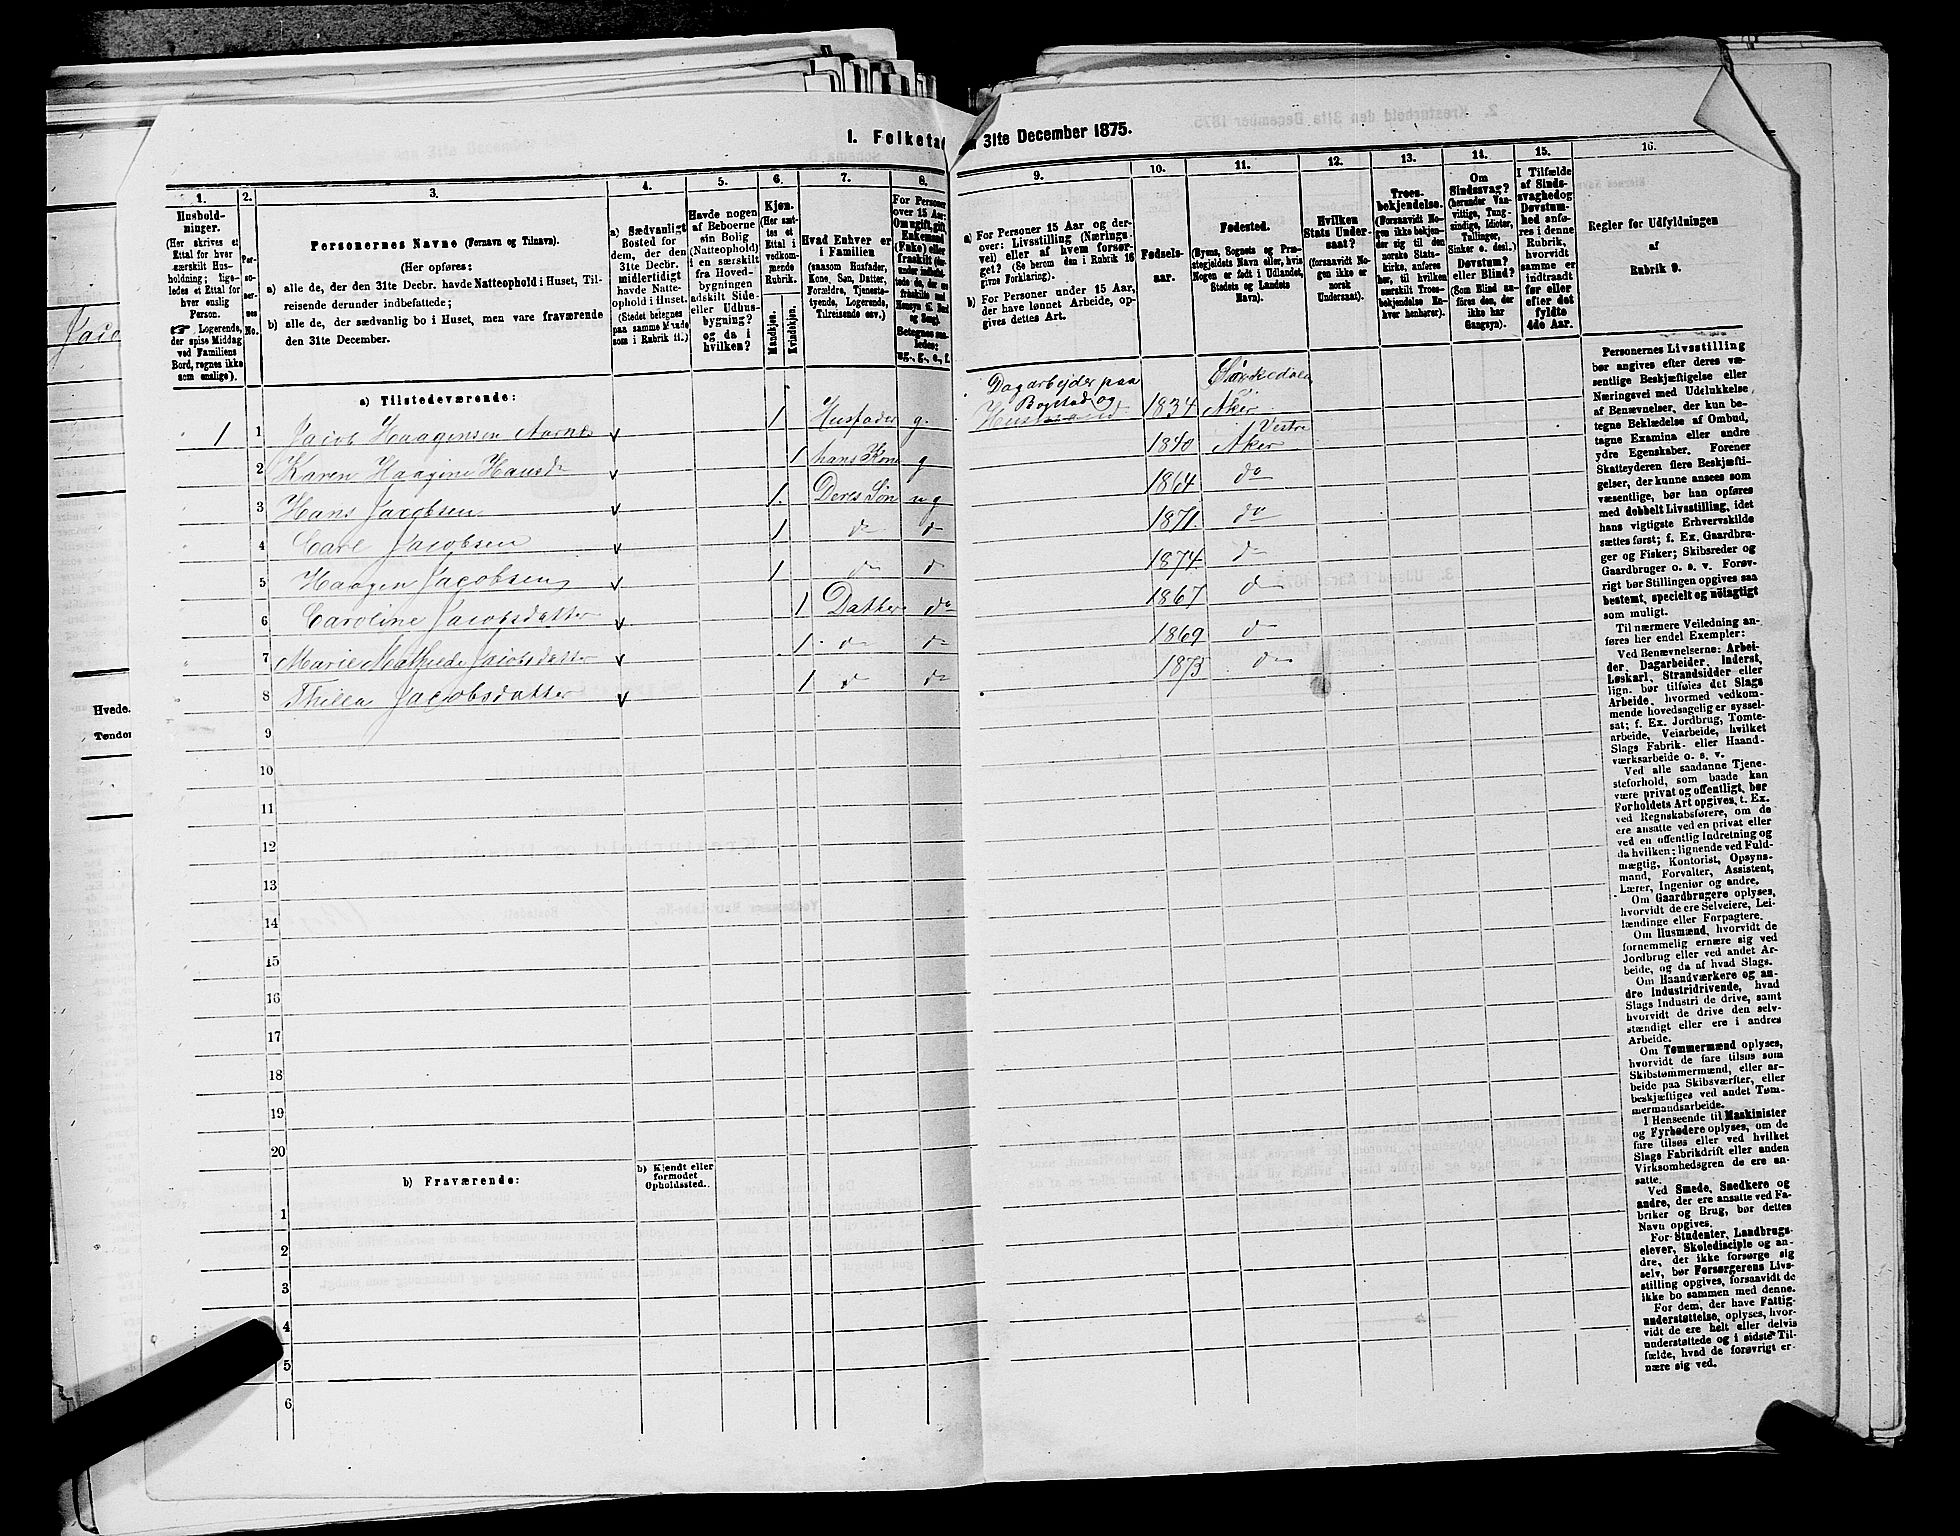 I. Folketæ
n 31te December 1875.
1.
2.
3.
4.
5.
6.
7.
8.
9.
10.
11.
12.
13.
14.
15.
16.
Hushold-
ninger.
(Her skrives et
Ettal for hver
særskilt Hus-
holdning; lige-
ledes et Ettal for
hver enslig
Person.
☞ Logerende,
der spise Middag
ved Familiens
Bord, regnes ikke
som enslige).
Per-
so-
ner-
nes
No.
Personernes Navne (Fornavn og Tilnavn).
(Her opføres:
a) alle de, der den 31te Decbr. havde Natteophold i Huset, Til-
reisende derunder indbefattede;
b) alle de, der sædvanlig bo i Huset, men vare fraværende
den 31te December.
a) Sædvanligt
Bosted for
dem, der den
31te Decbr.
midlertidigt
havde Natte-
ophold i Huset.
(Stedet betegnes
paa samme Maade
som i Rubrik 11.)
Havde nogen
af Beboerne
sin Bolig
(Natteophold)
i en særskilt
fra Hoved-
bygningen
adskilt Side-
eller Udhus-
bygning?
og da i
hvilken?
Kjøn.
(Her sæt-
tes et
Ettal i
vedkom-
mende
Rubrik.
Mandkjøn.
Kvindekjøn.
Hvad Enhver er
i Familien
(saasom Husfader,
Kone, Søn, Datter,
Forældre, Tjeneste-
tyende, Logerende,
Tilreisende osv.)
For Personer
over 15 Aar:
Om ugift, gift,
Enkemand
(Enke) eller
fraskilt
Betegnes saa-
ledes:
ug., g., e., f.
a) For Personer 15 Aar og der-
over: Livsstilling (Nærings-
vei) eller af hvem forsør-
get? (Se herom den i Rubrik 16
givne Forklaring).
b) For Personer under 15 Aar,
der have lønnet Arbeide, op-
gives dettes Art.
Fødsels-
aar.
Fødested.
(Byens, Sognets og Præ-
stegjeldets Navn eller, hvis
Nogen er født i Udlandet,
Stedets og Landets
Navn).
Hvilken
Stats Under-
saat?
(forsaavidt No-
gen ikke er
norsk
Undersaat).
Troes-
bekjendelse.
(Forsaavidt No-
gen ikke bekjen-
der sig til den
norske Stats-
kirke, anføres
her, til hvilken
særskilt Troes-
bekjendelse En-
hver henhører).
Om
Sindssvag?
(herunder Van-
vittige, Tung-
sindige, Idioter,
Tullinger,
Sinker o. desl.)
Døvstum?
eller Blind?
(Som Blind an-
føres den, der
ikke har
Gangsyn).
I Tilfælde
af Sinds-
svaghed og
Døvstum-
hed anfø-
res i denne
Rubrik,
hvorvidt
samme er
indtraadt
før eller
efter det
fyldte
4de Aar.
Regler for Udfyldningen
af
Rubrik 9.
a) Tilstedeværende:
1 1 Jacob Haagensen Aarnes v 1 Husfader g. Dagarbejder paa Bogstad og 1834 Sørkedalen Aker
2 Karen Haagine Hansd v 1 hans Kone g 1840 Vestre Aker
3 Hans Jacobsen v 1 Deres Søn ug 1864 do
4 Carl Jacobsen v 1 do do 1871 do
5 Haagen Jacobsen v 1 do do 1874 do
6 Caroline Jacobsdatter v 1 Datter do 1867 do
7 Marie Mathilde Jacobsdatter v 1 do do 1869 do
8 Thilla Jacobsdatter v 1 do do 1873 do
9
10
11
12
13
14
15
16
17
18
19
20
b) Fraværende:
b) Kjendt eller
formodet
Opholdssted.
1
2
3
4
5
6
Personernes Livsstilling
bør angives efter deres væ-
sentlige Beskjæftigelse eller
Næringsvei med Udelukkelse
af Benævnelser, der kun be-
tegne Beklædelse af Ombud,
tagne Examina eller andre
ydre Egenskaber. Forener
Skatteyderen flere Beskjæfti-
gelser, der kunne ansees som
væsentlige, bør han opføres
med dobbelt Livsstilling, idet
hans vigtigste Erhvervskilde
sættes først; f. Ex. Gaardbru-
ger og Fisker; Skibsreder og
Gaardbruger o. s. v. Forøv-
rigt bør Stillingen opgives saa
bestemt, specielt og nøiagtigt
som muligt.
Til nærmere Veiledning an-
føres her endel Exempler:
Ved Benævnelserne: Arbei-
der, Dagarbeider, Inderst,
Løskarl, Strandsidder eller
lign. bør tilføies det Slags
Arbeide, hvormed vedkom-
mende hovedsagelig er syssel-
sat; f. Ex. Jordbrug, Tomte-
arbeide, Veiarbeide, hvilket
Slags Fabrik- eller Haand-
værksarbeide o. s. v.
Ved alle saadanne Tjene-
steforhold, som baade kan
være privat og offentligt, bør
Forholdets Art opgives, t. Ex.
ved Regnskabsførere, om de
ere ansatte ved en privat eller
ved en offentlig Indretning og
da hvilken; lignende ved Fuld-
mægtig, Kontorist, Opsyns-
mand, Forvalter, Assistent,
Lærer, Ingeniør og andre.
Om Gaardbrugere oplyses,
hvorvidt de ere Selveiere, Lei-
lændinge eller Forpagtere.
Om Husmænd, hvorvidt de
fornemmelig ernære sig ved
Jordbrug eller ved andet Ar-
beide, og da af hvad Slags.
Om Haandværkere og an-
dre Industridrivende, hvad
Slags Industri de drive, samt
hvorvidt de drive den selv-
stændigt eller ere i andres
Arbeide.
Om Tømmermænd oplyses,
hvorvidt de fare tilsøs som
Skibstømmermænd, eller ar-
beide paa Skibsværfter, eller
beskjæftiges ved andet Tøm-
mermandsarbeide.
I Henseende til Maskinister
og Fyrbødere oplyses, om de
fare tilsøs eller ved hvilket
Slags Fabrikdrift eller anden
Virksomhedsgren de ere an-
satte.
Ved Smede, Snedkere og
andre, der ere ansatte ved Fa-
briker og Brug, bør dettes
Navn opgives.
For Studenter, Landbrugs-
elever, Skoledisciple og an-
dre, der ikke forsørge sig
selv, bør Forsørgerens Livs-
stilling opgives, forsaavidt de
ikke bo sammen med denne.
For dem, der have Fattig-
understøttelse, oplyses, hvor-
vidt de ere helt eller delvis
understøttede og i sidste Til-
fælde, hvad de forøvrigt er-
nære sig ved.
Hvede.
Tønder